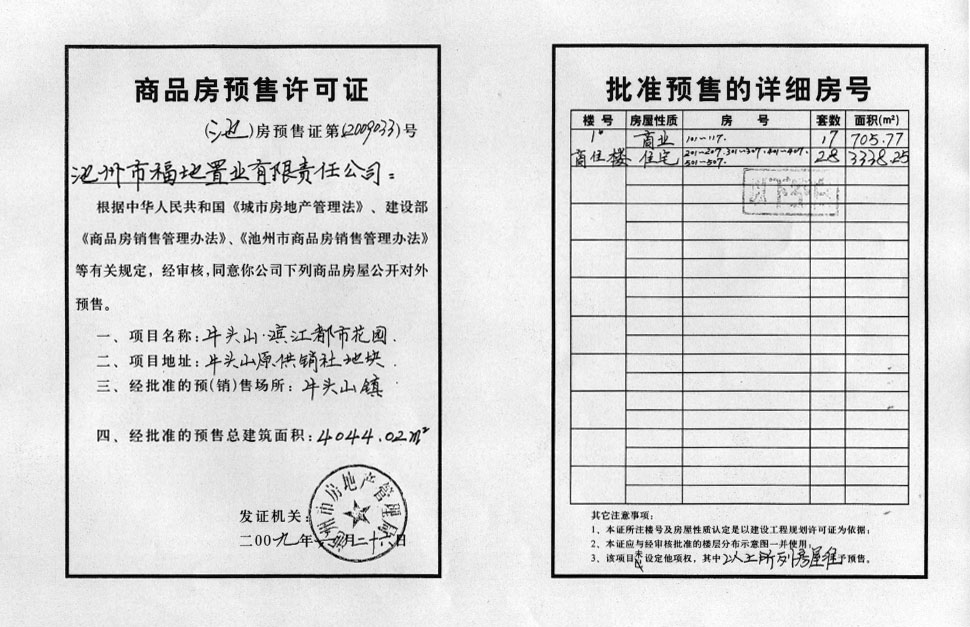 商品房预售许可证
(池)房预售证第(2009033)号
池州市福地置业有限责任公司：
根据中华人民共和国《城市房地产管理法》、建设部
《商品房销售管理办法》、《池州市商品房销售管理办法》
等有关规定，经审核，同意你公司下列商品房屋公开对外
预售。
一、项目名称：牛头山·滨江都市花园.
二、项目地址：牛头山原供销社地块.
三、经批准的预(销)售场所：牛头山镇.
四、经批准的预售总建筑面积：4044.02m²
池州市房地产管理局
发证机关：
二00九年 月二十六日
批准预售的详细房号
楼 号 房屋性质 房 号 套数 面积(m²)
1# 商业 101～117. 17 705.77
商住楼 住宅 201～207.301～307.401～407. 28 3338.25
501～507.
以下空白
其它注意事项：
1、本证所注楼号及房屋性质认定是以建设工程规划许可证为依据；
2、本证应与经审核批准的楼层分布示意图一并使用；
3、该项目未设定他项权，其中以上所列房屋准予预售。